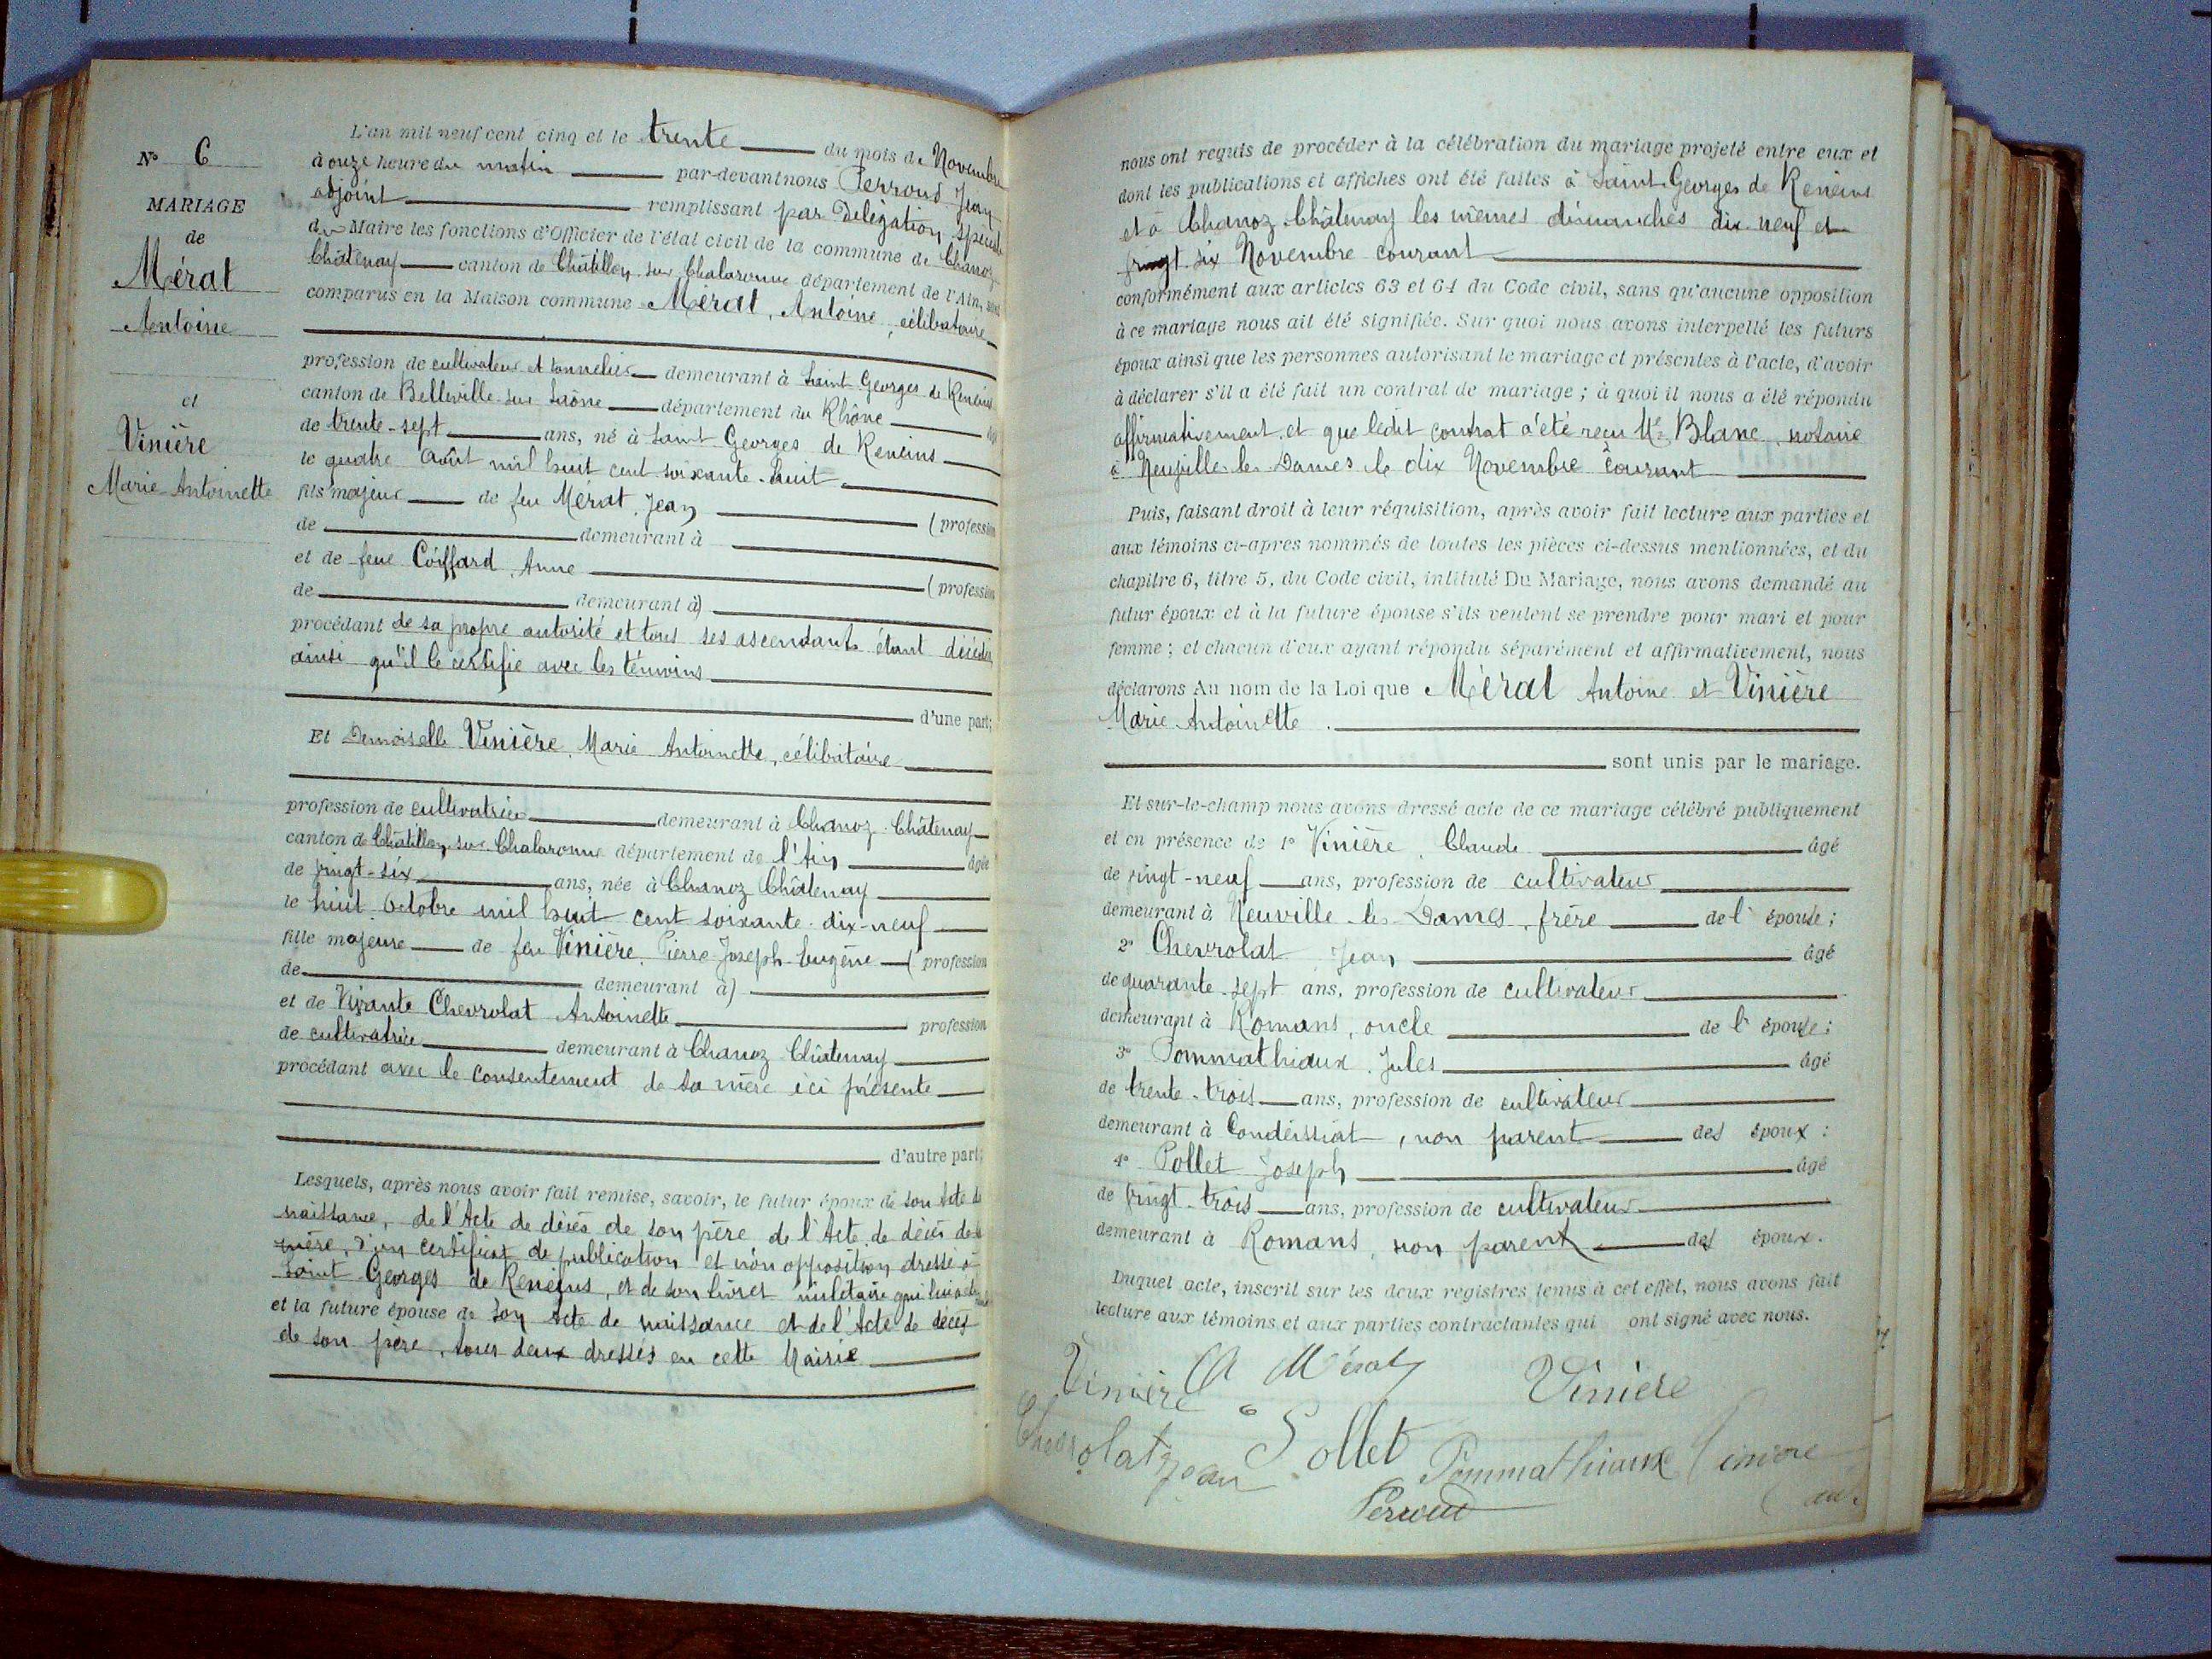 N° 6
MARIAGE
de
Mérat
Antoine
et
Vinière
Marie-Antoinette
L'an mil neuf cent cinq et le trente du mois de Novembre
à onze heure du matin par-devant nous Perroud Jean
adjoint remplissant par Délégation spéciale
du Maire les fonctions d'Officier de l'état civil de la commune de Chanoz
Châtenay canton de Châtillon sur Chalaronne département de l'Ain, sont
comparus en la Maison commune Mérat, Antoine, célibataire
profession de cultivateur et tonnelier demeurant à Saint Georges de Reneins
canton de Belleville sur Saône département du Rhône âgé
de trente-sept ans, né à Saint Georges de Reneins
le quatre Août mil huit cent soixante-huit
fils majeur de feu Mérat, Jean (profession
de demeurant à
et de feue Coiffard, Anne (profession
de demeurant à)
procédant de sa propre autorité et tous ses ascendants étant décédés
ainsi qu'il le certifie avec les témoins
d'une part;
Et Demoiselle Vinière, Marie Antoinette, célibataire
profession de cultivatrice demeurant à Chanoz-Châtenay
canton de Châtillon sur Chalaronne département de l'Ain âgée
de vingt-six ans, née à Chanoz Châtenay
le huit Octobre mil huit cent soixante-dix-neuf
fille majeure de feu Vinière, Pierre-Joseph-Eugène (profession
de demeurant à)
et de Vivante Chevrolat Antoinette profession
de cultivatrice demeurant à Chanoz-Châtenay
procédant avec le consentement de sa mère ici présente
d'autre part;
Lesquels, après nous avoir fait remise, savoir, le futur époux de son Acte de
naissance, de l'Acte de décès de son père de l'Acte de décès de sa
mère, d'un certificat de publication et non opposition dressé à
Saint Georges de Reneins, et de son livret militaire qui lui a été
et la future épouse de son Acte de naissance et de l'Acte de décès
de son père, tous deux dressés en cette Mairie
nous ont requis de procéder à la célébration du mariage projeté entre eux et
dont les publications et affiches ont été faites à Saint-Georges de Reneins
et à Chanoz-Châtenay les mêmes dimanches dix-neuf et
vingt-six Novembre courant
conformément aux articles 63 et 64 du Code civil, sans qu'aucune opposition
à ce mariage nous ait été signifiée. Sur quoi nous avons interpellé les futurs
époux ainsi que les personnes autorisant le mariage et présentes à l'acte, d'avoir
à déclarer s'il a été fait un contrat de mariage ; à quoi il nous a été répondu
affirmativement, et que ledit contrat a été reçu Me Blanc, notaire
à Neuville-les-Dames le dix Novembre courant
Puis, faisant droit à leur réquisition, après avoir fait lecture aux parties et
aux témoins ci-après nommés de toutes les pièces ci-dessus mentionnées, et du
chapitre 6, titre 5, du Code civil, intitulé Du Mariage, nous avons demandé au
futur époux et à la future épouse s'ils veulent se prendre pour mari et pour
femme ; et chacun d'eux ayant répondu séparément et affirmativement, nous
déclarons Au nom de la Loi que Mérat Antoine et Vinière
Marie-Antoinette
sont unis par le mariage.
Et sur-le-champ nous avons dressé acte de ce mariage célébré publiquement
et en présence de 1° Vinière, Claude âgé
de vingt-neuf ans, profession de cultivateur
demeurant à Neuville-les-Dames, frère de l'épouse ;
2° Chevrolat Jean âgé
de quarante-sept ans, profession de cultivateur
demeurant à Romans, oncle de l'épouse ;
3° Pommathiaux, Jules âgé
de trente-trois ans, profession de cultivateur
demeurant à Condeissiat, non parent des époux :
4° Pollet Joseph âgé
de vingt-trois ans, profession de cultivateur
demeurant à Romans, non parent des époux.
Duquel acte, inscrit sur les deux registres tenus à cet effet, nous avons fait
lecture aux témoins et aux parties contractantes qui ont signé avec nous.
Vinière A Mérat Vinière
Chevrolat Jean Pollet Pommathiaux Vinière
Perroud